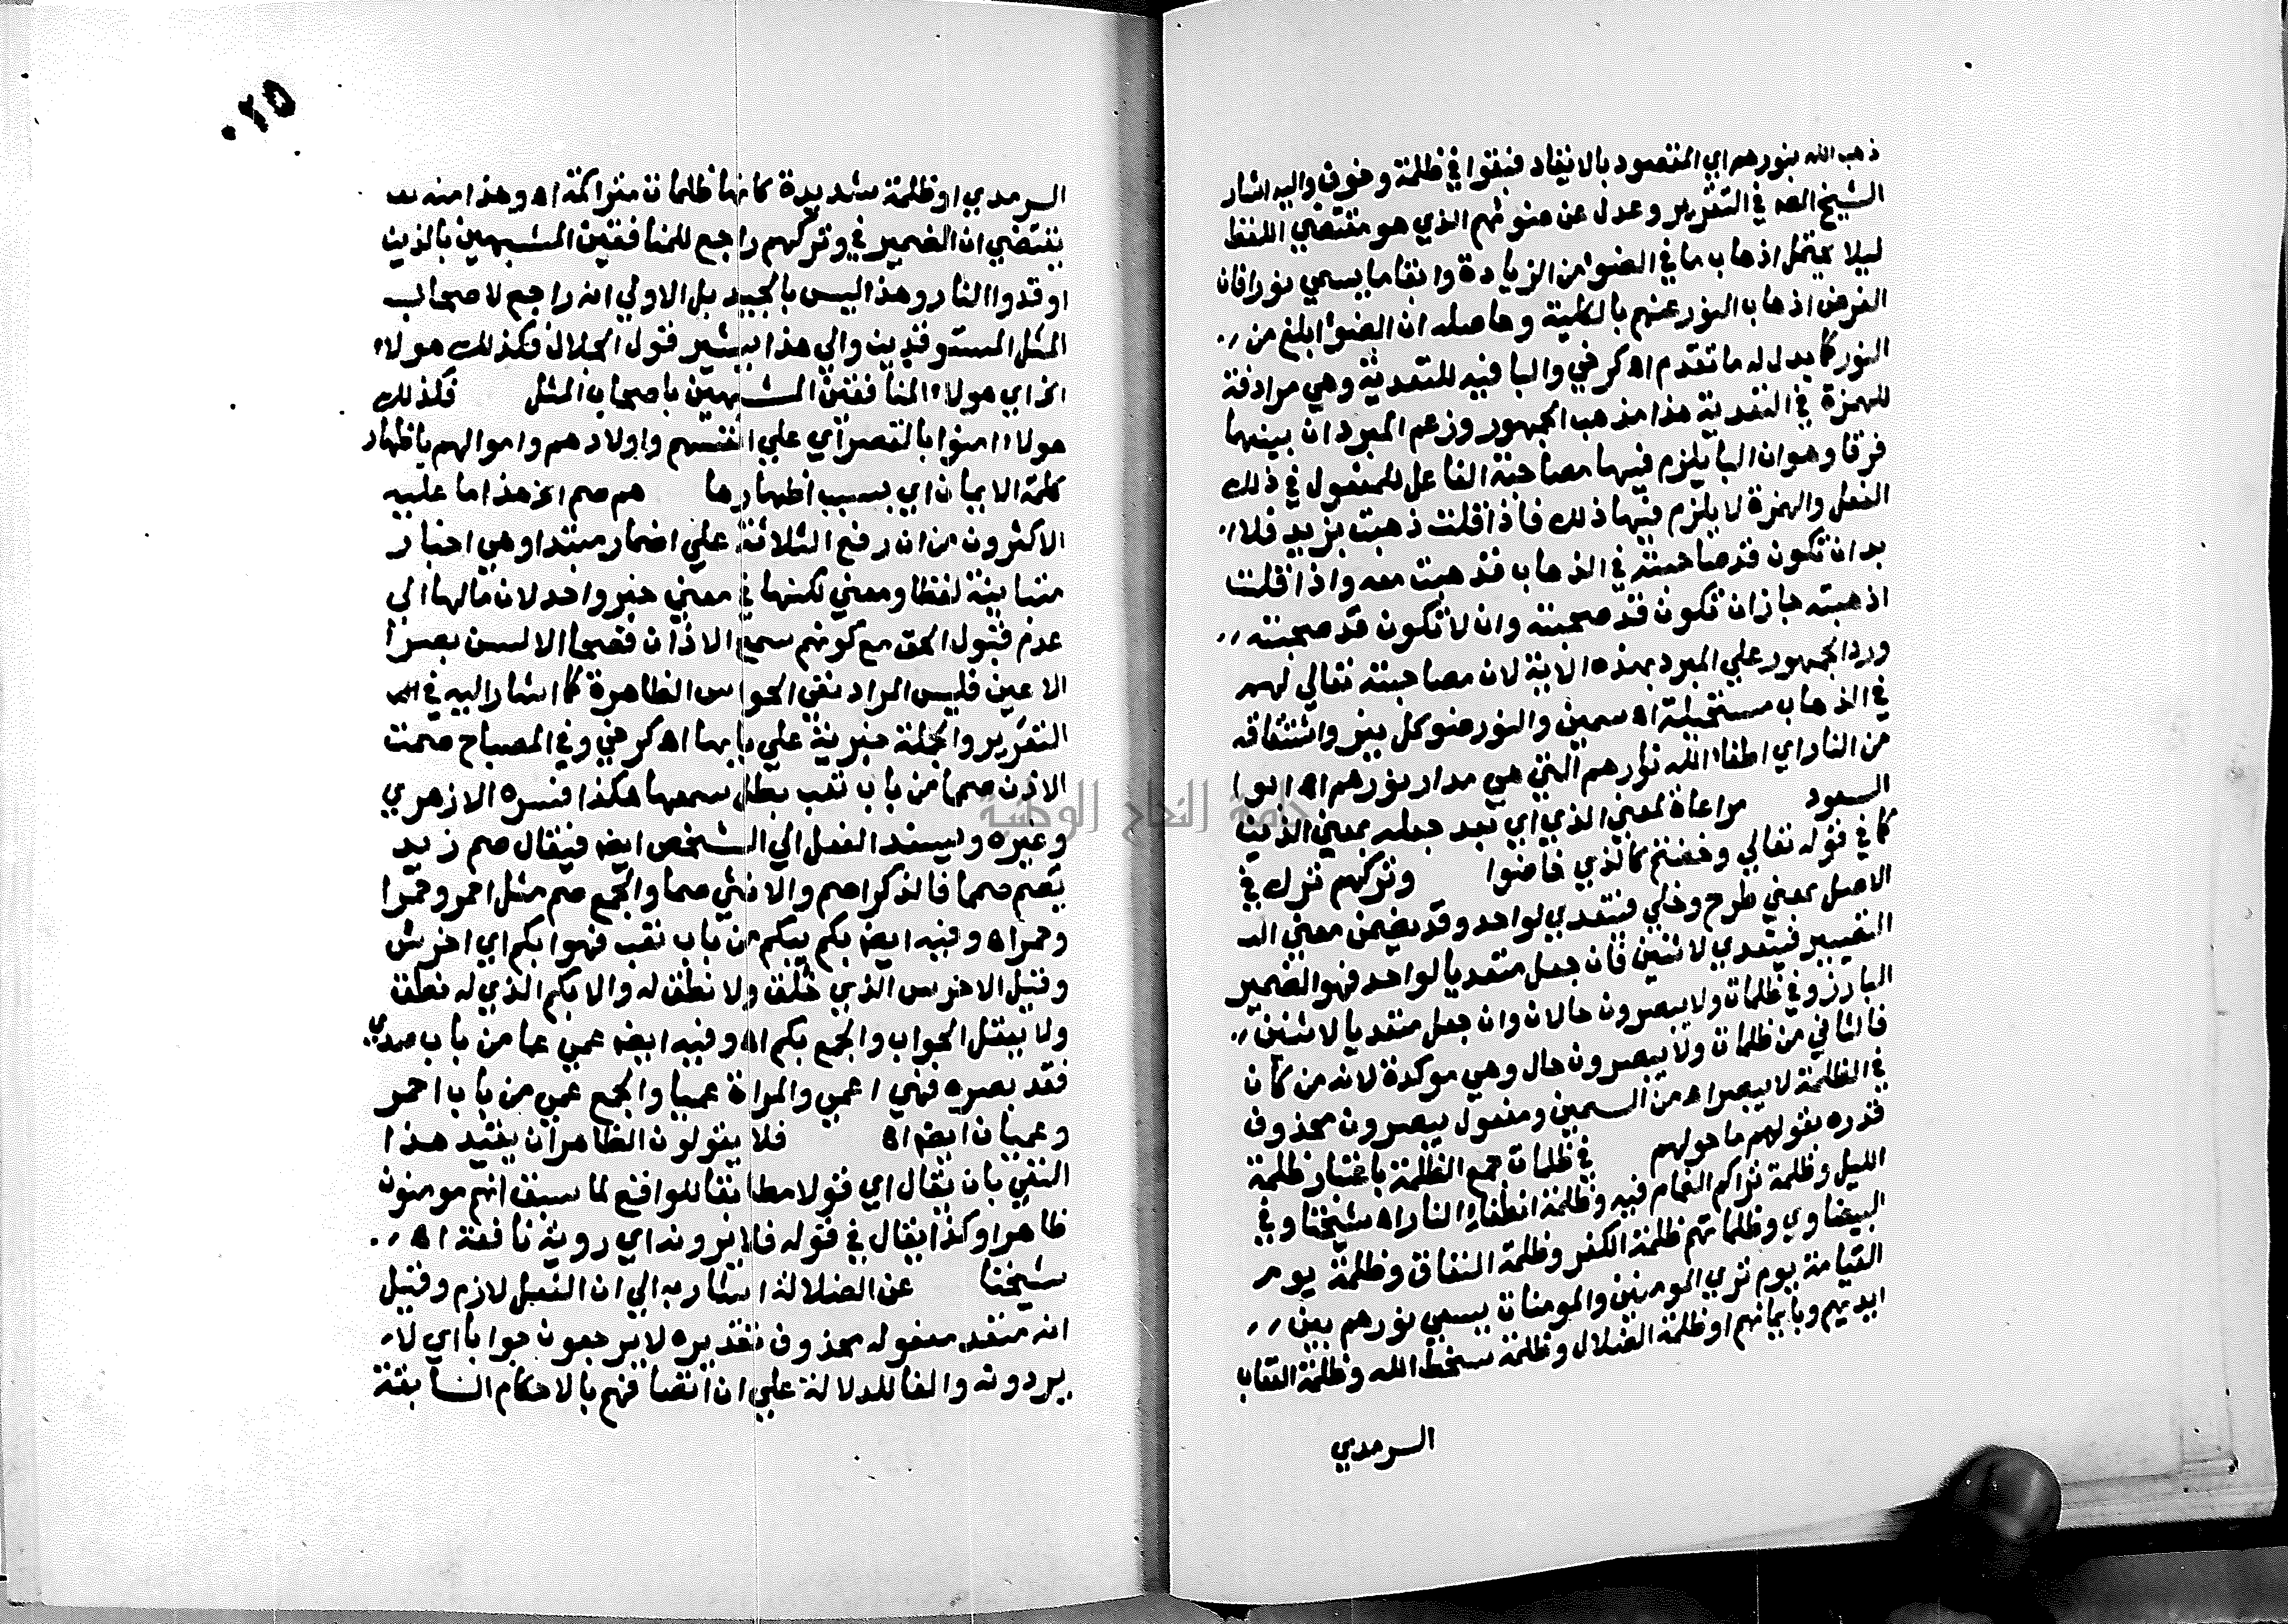 ذهب الله بنورهم اي المقصود بالايقاد فبقوا في ظلمة وخوف واليه اشار
الشيخ المص في التقرير وعدل عن ضوئهم الذي هو مقتضي اللفظ
ليلا يحتمل اذهاب ما في الضوء من الزيادة وابقا ما يسمي نورا فان
الغرض اذهاب النور عنهم بالكلية وحاصله ان الضوا ابلغ من
النور كما يدل له ما تقدم اه كرخي والبا فيه للتعدية وهي مرادفة
للهمزة في التعدية هذا مذهب الجمهور وزعم المبرد ان بينهما
فرقا وهو ان البا يلزم فيها مصاحبة الفاعل للمفعول في ذلك
الفعل والهمزة لا يلزم فيها ذلك فاذا قلت ذهبت بزيد فلا
بد ان تكون قد صاحبته في الذهاب فذهبت معه واذا قلت
اذهبته جاز ان تكون قد صحبته وان لا تكون قد صحبته
ورد الجمهور علي المبرد بهذه الاية لان مصاحبته تعالي لهم
في الذهاب مستحيلة اه سمين والنور ضوء كل نير واشتقاقه
من النار اي اطفا الله نارهم التي هي مدار نورهم اه ابوا
السعود مراعاة لمعني الذي اي بعد جعله بمعني الذين
كما في قوله تعالي وخضتم كالذي خاضوا وتركهم ترك في
الاصل بمعني طرح وخلي فيتعدي لواحد وقد يضمن معني الت
التصيير فيتعدي لاثنين فان جعل متعديا لواحد فهو الضمير
البارز وفي ظلمات ولا يبصرون حالان وان جعل متعديا لاثنين
فالثاني من ظلمات ولا يبصرون حال وهي موكدة لانه من كان
في الظلمة لا يبصر اه من السمين ومفعول يبصرون محذوف
قدره بقولهم ما حولهم في ظلمات جمع الظلمة باعتبار ظلمة
الليل وظلمة تراكم الغمام فيه وظلمة انطفاء النار اه شيخنا وفي
البيضاوي وظلماتهم ظلمة الكفر وظلمة النفاق وظلمة يوم
القيامة يوم تري المومنين والمومنات يسعي نورهم بين
ايديهم وبايمانهم او ظلمة الضلال وظلمة سخط الله وظلمة العقاب
السرمدي
٢٥٠
السرمدي او ظلمة شديدة كانها ظلمات متراكمة اه وهذا منه
يقتضي ان الضمير في وتركهم راجع للمنافقين المشبهين بالذين
اوقدوا النار وهذا ليس بالجيد بل الاولي انه راجع لاصحاب
المثل المستوقدين والي هذا يشير قول الجلال فكذلك هولاء
الخ اي هولاء المنافقين المشبهين باصحاب المثل فكذلك
هولاء امنوا بالقصر اي علي انفسهم واولادهم واموالهم باظهار
كلمة الايمان اي بسبب اظهارها هم صم الخ هذا ما عليه
الاكثرون من ان رفع الثلاثة علي اضمار مبتدا وهي اخبار
متباينة لفظا ومعني لكنها في معني خبر واحد لان مالها الي
عدم قبول الحق مع كونهم سمع الاذان فصحا الالسن بصرا
الاعين فليس المراد نفي الحواس الظاهرة كما اشار اليه في الت
التقرير والجملة خبرية علي بابها اه كرخي وفي المصباح صمت
الاذن صمما من باب تعب بطل سمعها هكذا فسره الازهري
وغيره ويسند الفعل الي الشخص ايضا فيقال صم زيد
يصم صمما فالذكر اصم والانثي صما والجمع صم مثل احمر وحمرا
وحمر اه وفيه ايضا بكم يبكم من باب تعب فهوا بكم اي اخرس
وقيل الاخرس الذي خلق ولا نطق له والابكم الذي له نطق
ولا يعقل الجواب والجمع بكم اه وفيه ايضا عمي عما من باب صدي
فقد بصره فهي اعمي والمراة عميا والجمع عمي من باب احمر
وعميان ايضا اه فلا يقولون الظاهر ان يقيد هذا
النفي بان يقال اي قولا مطابقا للواقع لما سبق انهم مومنون
ظاهرا وكذا يقال في قوله فلا يرونه اي روية نافعة اه
شيخنا عن الضلالة اشار به الي ان الفعل لازم وقيل
انه متعد مفعوله محذوف تقديره لا يرجعون جوابا اي لا
يردونه والفا للدلالة علي ان اتصافهم بالاحكام السابقة